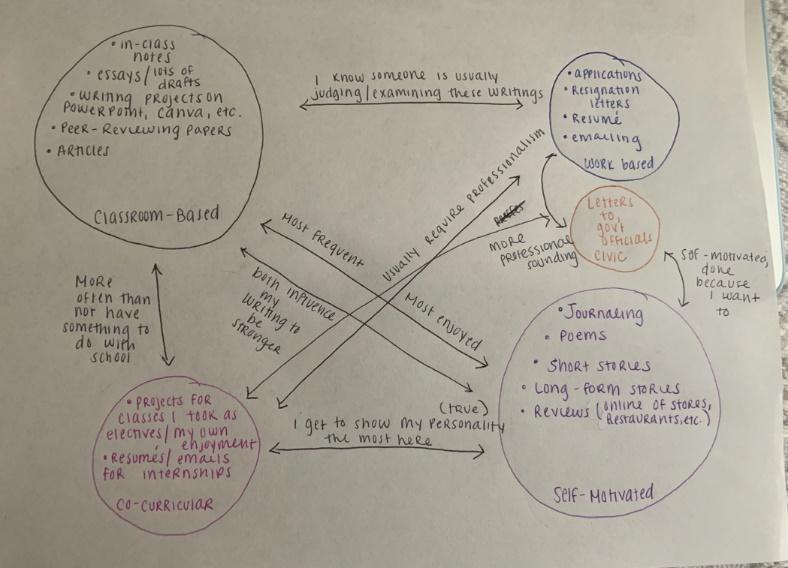 • in-class
notes
• essays/lots of
drafts
• writing projects on
PowerPoint, Canva, etc.
• Peer-Reviewing papers
• Articles
Classroom-Based
I know someone is usually
judging/examining these writings
• applications
• Resignation
letters
• Resumé
• emailing
work based
Letters
to
gov't
officials
civic
self-motivated,
done
because
I want
to
usually require professionalism
more
professional
sounding
Most frequent
Most enjoyed
both influence
my
writing to
be
stronger
More
often than
not have
something to
do with
school
• Journaling
• Poems
• Short stories
• Long-form stories
• Reviews (online of stores,
Restaurants, etc.)
Self-Motivated
(true)
I get to show my personality
the most here
• Projects for
classes I took as
electives/my own
enjoyment
• Resumés/emails
for internships
co-curricular